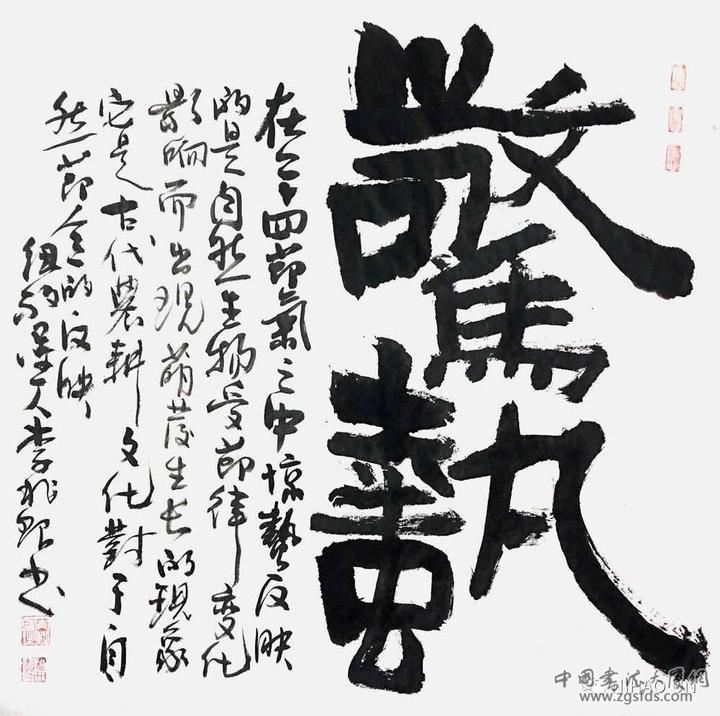 驚蟄
在二十四節氣之中惊蟄反映
的是自然生物受節律变化
影响而出現萌发生长的現象
它是古代農耕文化對于自
然節令的反映
纽约漢人李兆银书
中國書法大同網
www.zgsfds.com